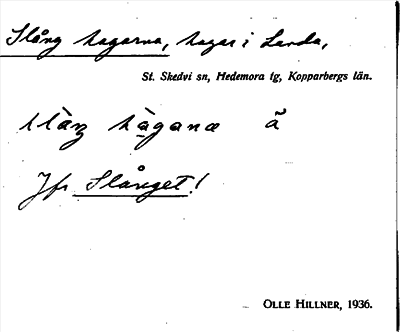 Slång hagarna, hagar i Landa,
St. Skedvi sn, Hedemora tg, Kopparbergs län.
hàganæ ã
Jfr Slånget!
OLLE HILLNER, 1936.